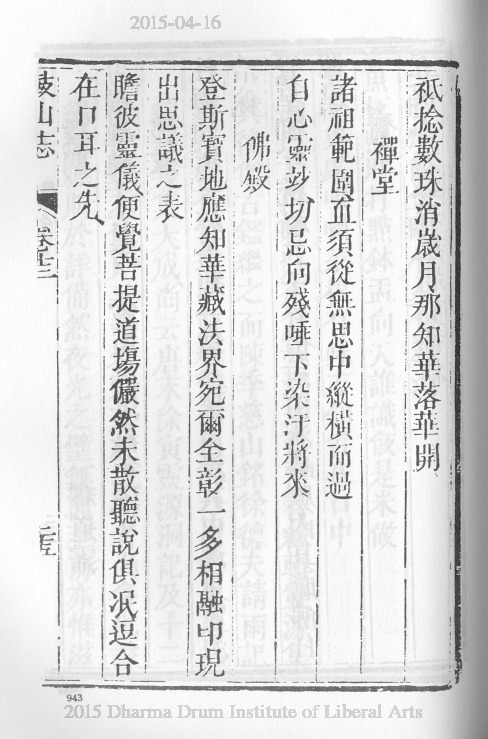 2015-04-16
祇捻數珠消歲月那知華落華開
禪堂
諸祖範圍直須從無思中縱橫而過
自心靈妙切忌向殘唾下染汙將來
佛殿
登斯寶地應知華藏法界宛爾全彰一多相融印現
出思議之表
瞻彼靈儀便覺菩提道場儼然未散聽說俱泯逗合
在口耳之先
鼓山志
卷十三
943
2015 Dharma Drum Institute of Liberal Arts